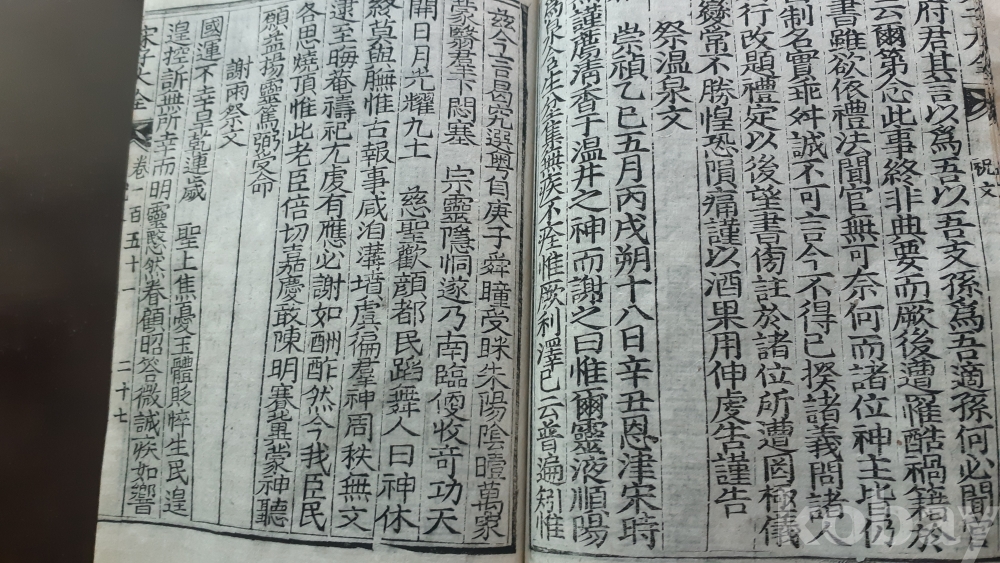 大全
祝文
府君甚言以爲吾以吾支孫爲吾適孫何必聞官
云爾第念此事終非典要而厥後遭罹酷禍籍於
書雖欲依禮法聞官無可奈何而諸位神主皆仍
制名實乖舛誠不可言今不得已揆諸義問諸人
行改題禮定以後望書傍註於諸位所遭罔極儀
變常不勝惶恐隕痛謹以酒果用伸虔告謹告
祭溫泉文
崇禎乙巳五月丙戌朔十八日辛丑恩津宋時
烈謹薦淸香于溫井之神而謝之曰惟爾靈液順陽
炎含生坌集無疾不痊惟厥利澤已云普遍矧惟
玆今言曷究選粤自庚子舜瞳受眯朱陽陰曀萬象
蒙翳羣下悶塞 宗靈隱恫遂乃南臨倐收奇功天
開日月光耀九土 慈聖歡顔都民蹈舞人曰神休
終莫與膴惟古報事咸洎溝墳虞徧羣神周秩無文
逮至晦菴禱祀尤虔有應必謝如酬酢然今我臣民
各思燒頂惟此老臣倍切嘉慶敢陳明冀蒙神聽
願益揚靈篤弼受命
謝雨祭文
國運不幸旱乾連歲 聖上焦憂玉體貶悴生民遑
遑控訴無所幸而明靈惄然眷顧昭答微誠疾如響
宋子大全 卷一百五十一 二十七